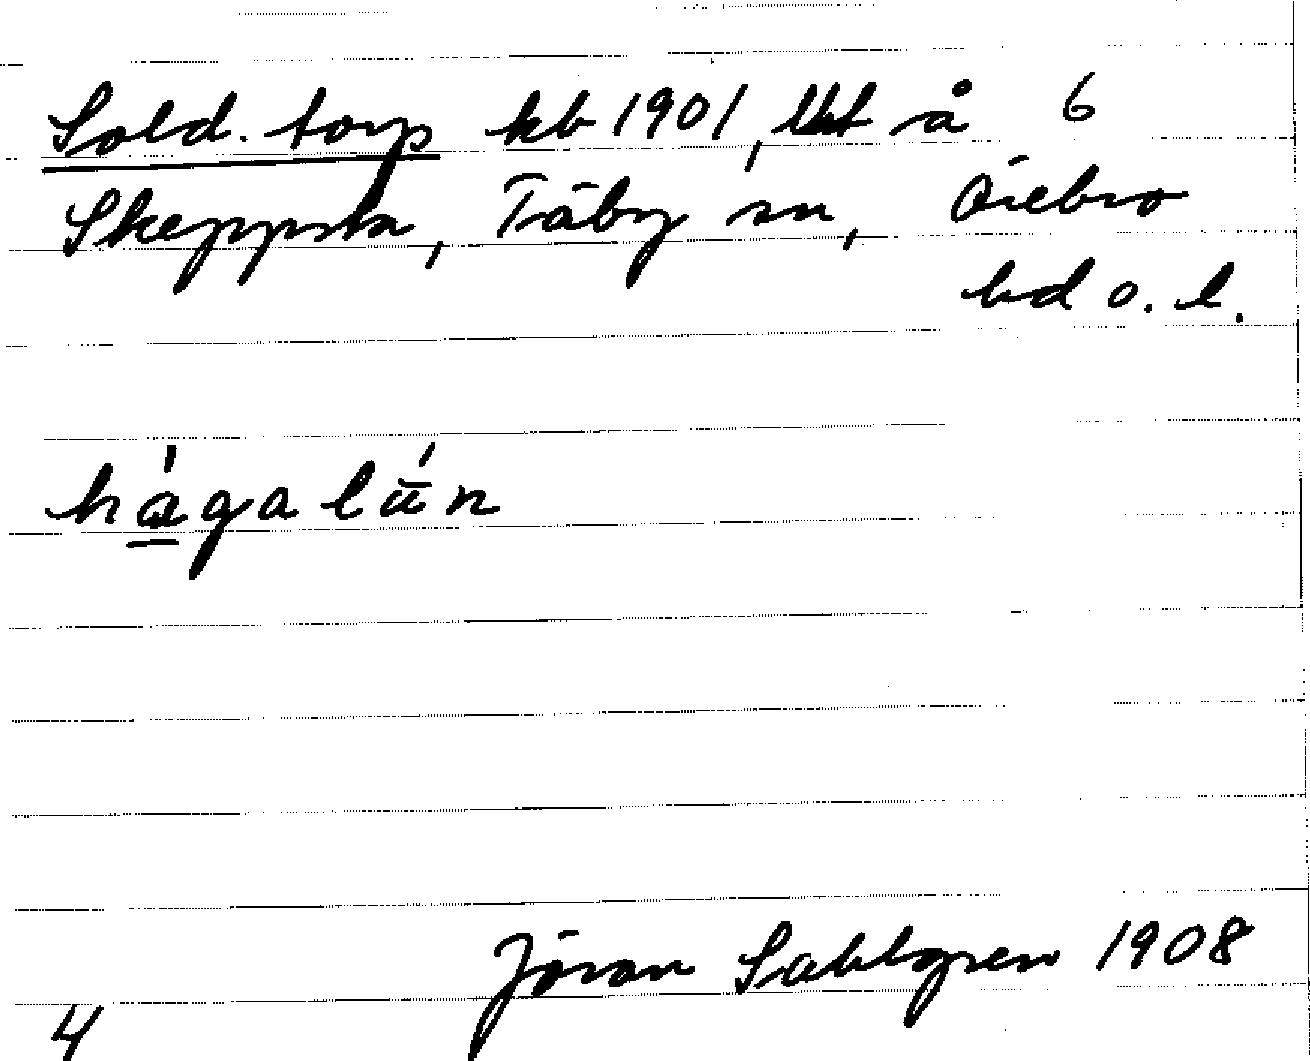 Sold. torp kb 1901, lht å 6
Skeppsta, Täby sn, Örebro
hd o. l.
hågalūn
Jöran Sahlgren 1908
4